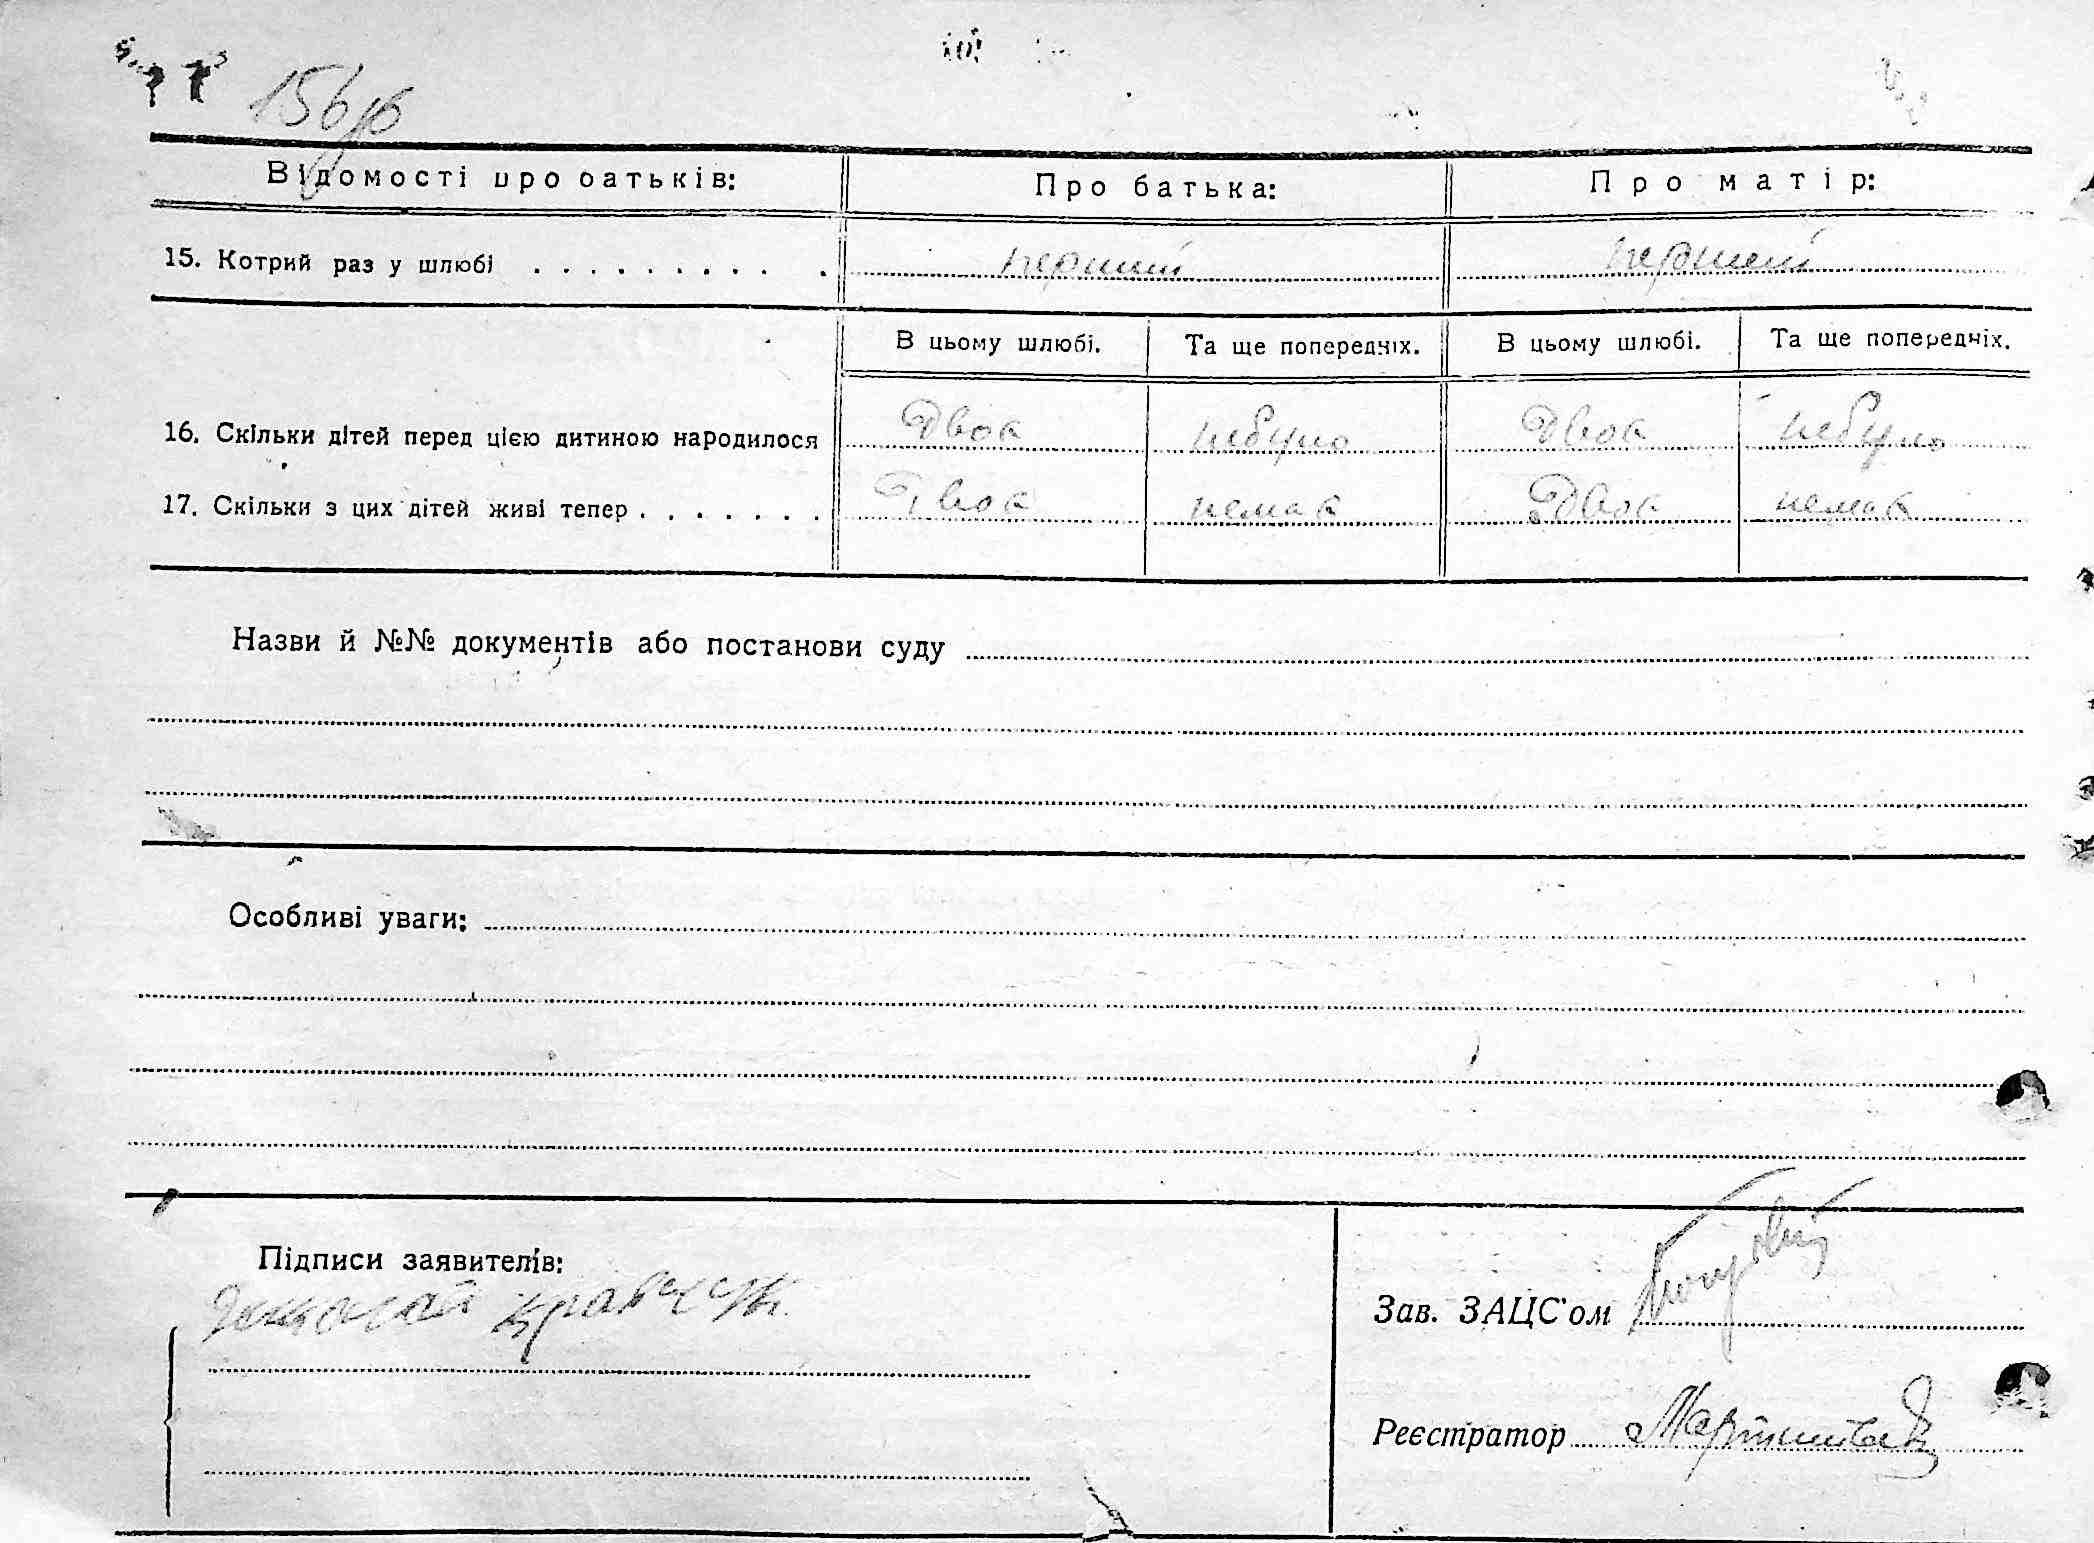 156
Відомості про батьків:
Про батька:
Про матір:
15. Котрий раз у шлюбі . . . . . . . . . .
перший
перший
В цьому шлюбі.
Та ще попередніх.
В цьому шлюбі.
Та ще попередніх.
16. Скільки дітей перед цією дитиною народилося
Двоє
небуло
Двоє
небуло
17. Скільки з цих дітей живі тепер . . . . . . .
Двоє
немає
Двоє
немає
Назви й №№ документів або постанови суду
Особливі уваги:
Підписи заявителів:
Кравчук
Зав. ЗАЦС'ом
Реєстратор